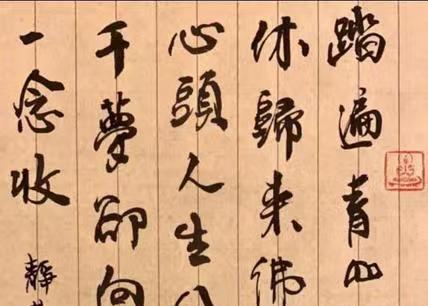 踏遍青山
休歸来佛
心頭人生八
千夢卻向
一念收
靜